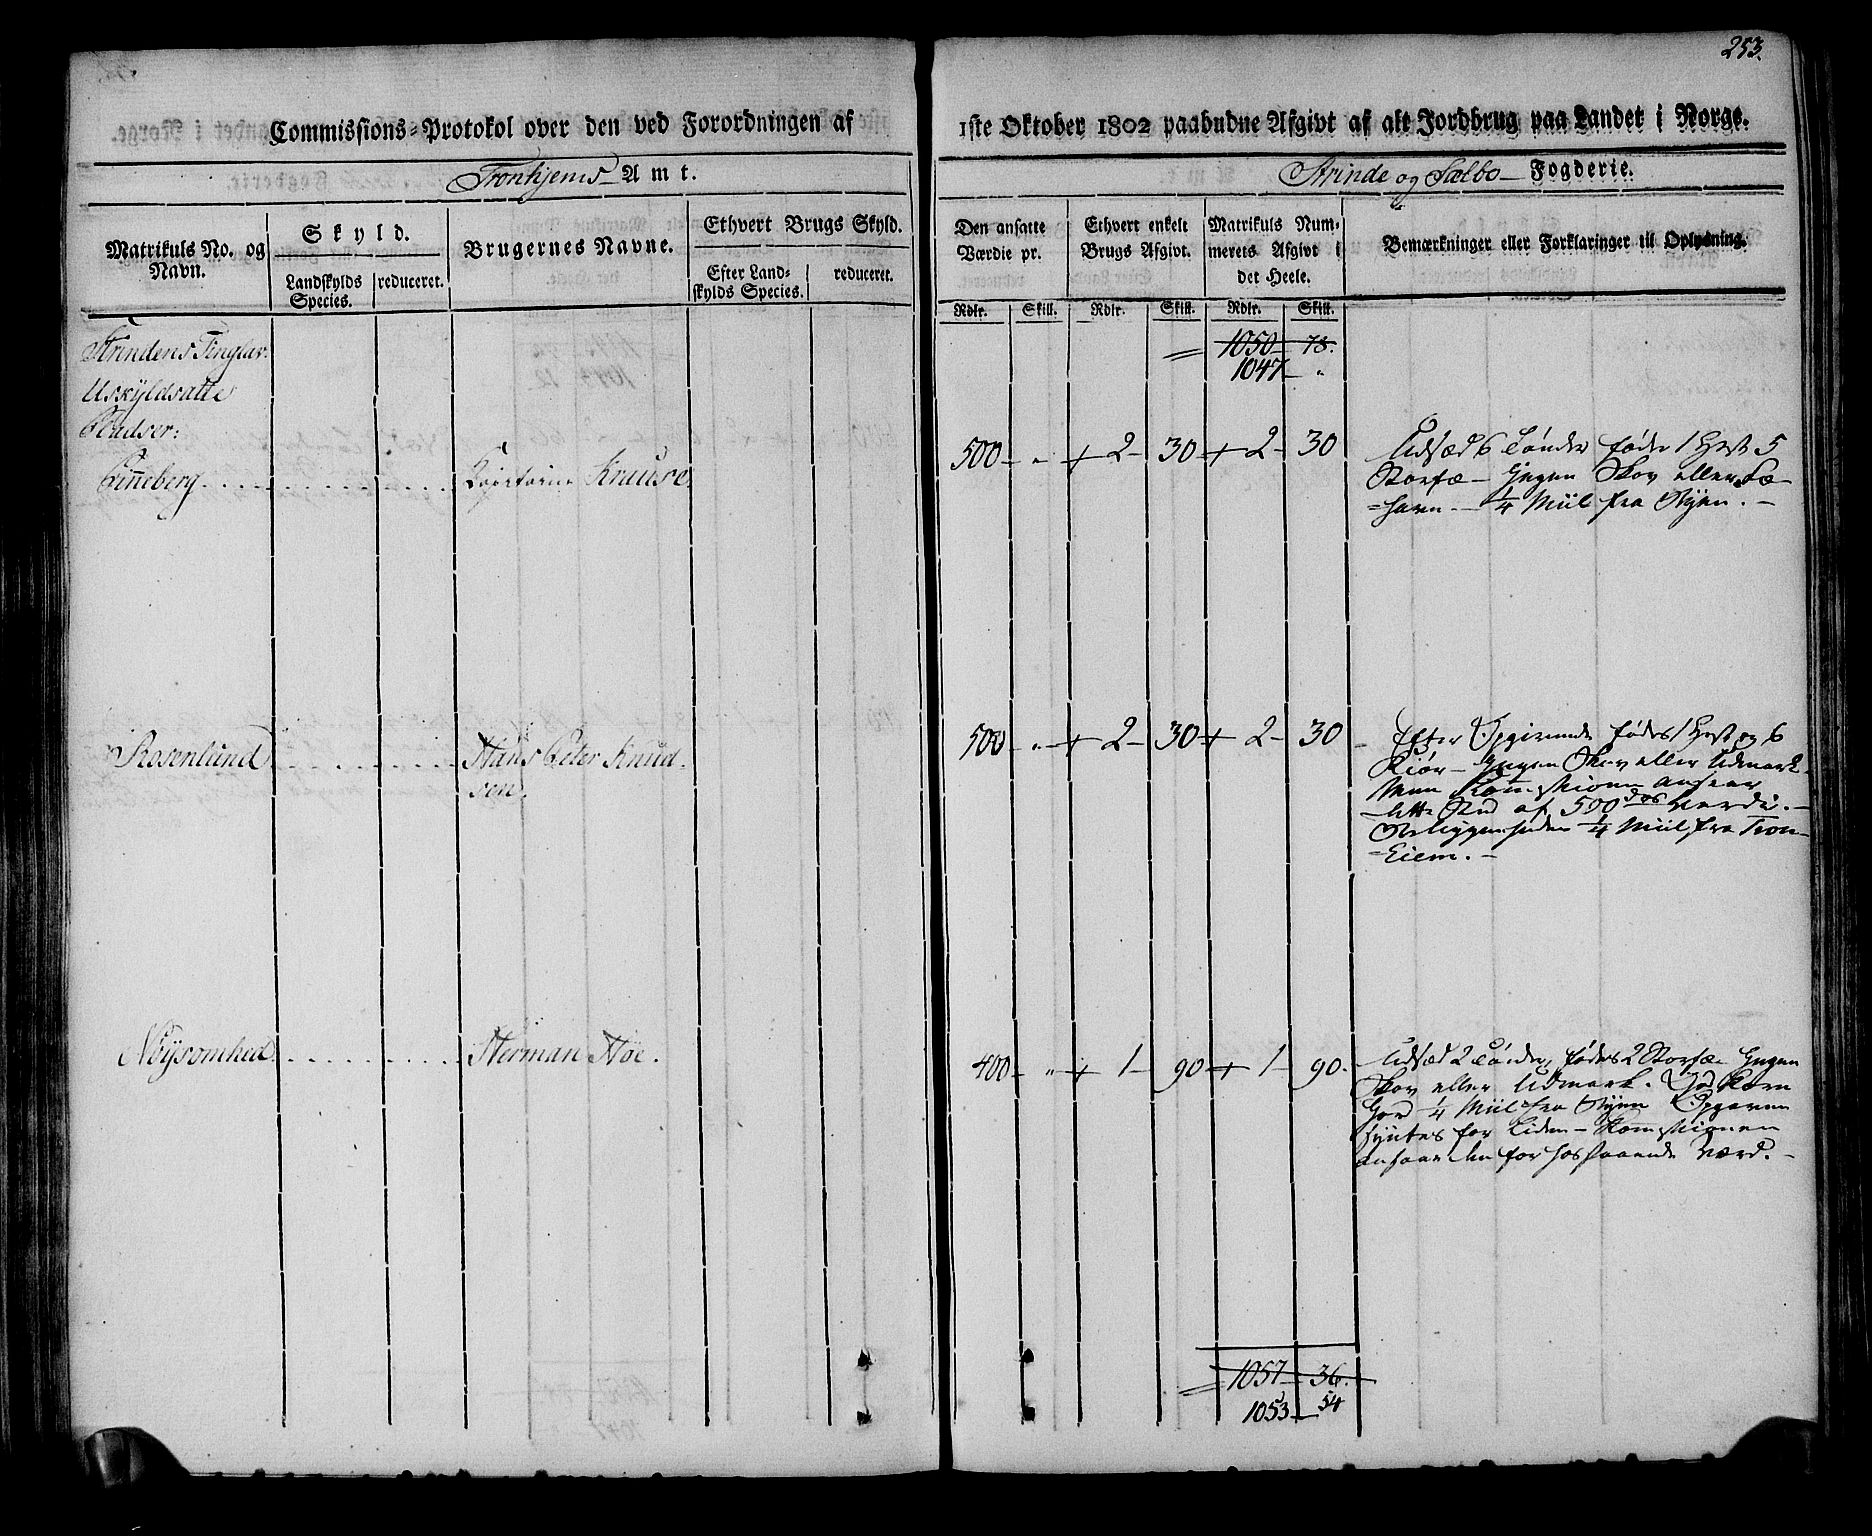 253.
Commissions-Protokol over den ved Forordningen af
1ste Oktober 1802 paabudne Afgivt af alt Jordbrug paa Landet i Norge.
Tronhjems Amt.
Strinde og Sælbo Fogderie.
Matrikuls No. og Navn.
Skyld.
Landskylds Species.
reduceret.
Brugernes Navne.
Ethvert Brugs Skyld.
Efter Landskylds Species.
reduceret.
Den ansatte Værdie pr.
Ethvert enkelt Brugs Afgivt.
Matrikuls Nummerets Afgivt i det Heele.
Bemærkninger eller Forklaringer til Oplysning.
Rdlr. Skill. Rdlr. Skill. Rdlr. Skill.
Strindens Tinglav.
1050 78.
1047 "
Uskyldsatte
Pladser:
Pineberg
Knause
500 " + 2 30 + 2 30
Udsæd 6 Tønder føder 1 Hest 5
Storfæ - Ingen Skov eller Sæ-
=havn - 1/4 Miil fra Byen. -
Rosenlund
Hans Peter Knud-
sen.
500 " + 2 30 + 2 30
Efter Opgivende fødes 1 Hest og 6
Kiør - Ingen Skov eller Udmark.
Men Komissionen ansaae
dette Sted af 500 rdrs Værdi. -
Beliggenheden 1/4 Miil fra Tron-
=hiem. -
Nøysomhed
Herman Hoe.
400 " + 1 90 + 1 90.
Udsæd 2 Tønder, fødes 2 Storfæ Ingen
Skov eller Udmark. God Korn
Jord 1/4 Miil fra Byen Opgaven
syntes for liden - Komissionen
ansaae den for hosstaaende Værd. -
1057 36.
1053 54